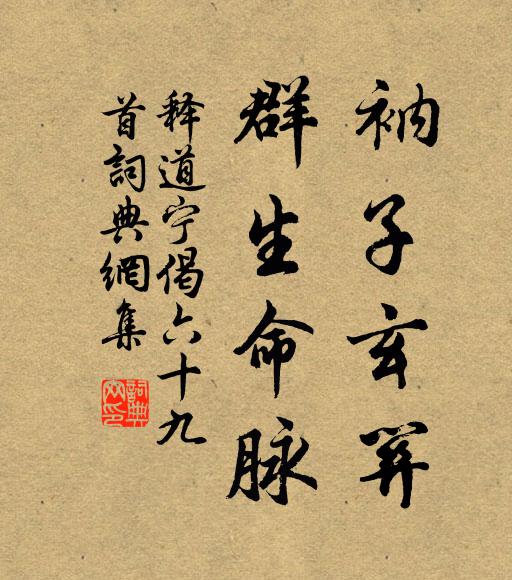 衲子玄關
群生命脉
释道宁偈六十九
首詞典網集
詞典
网印